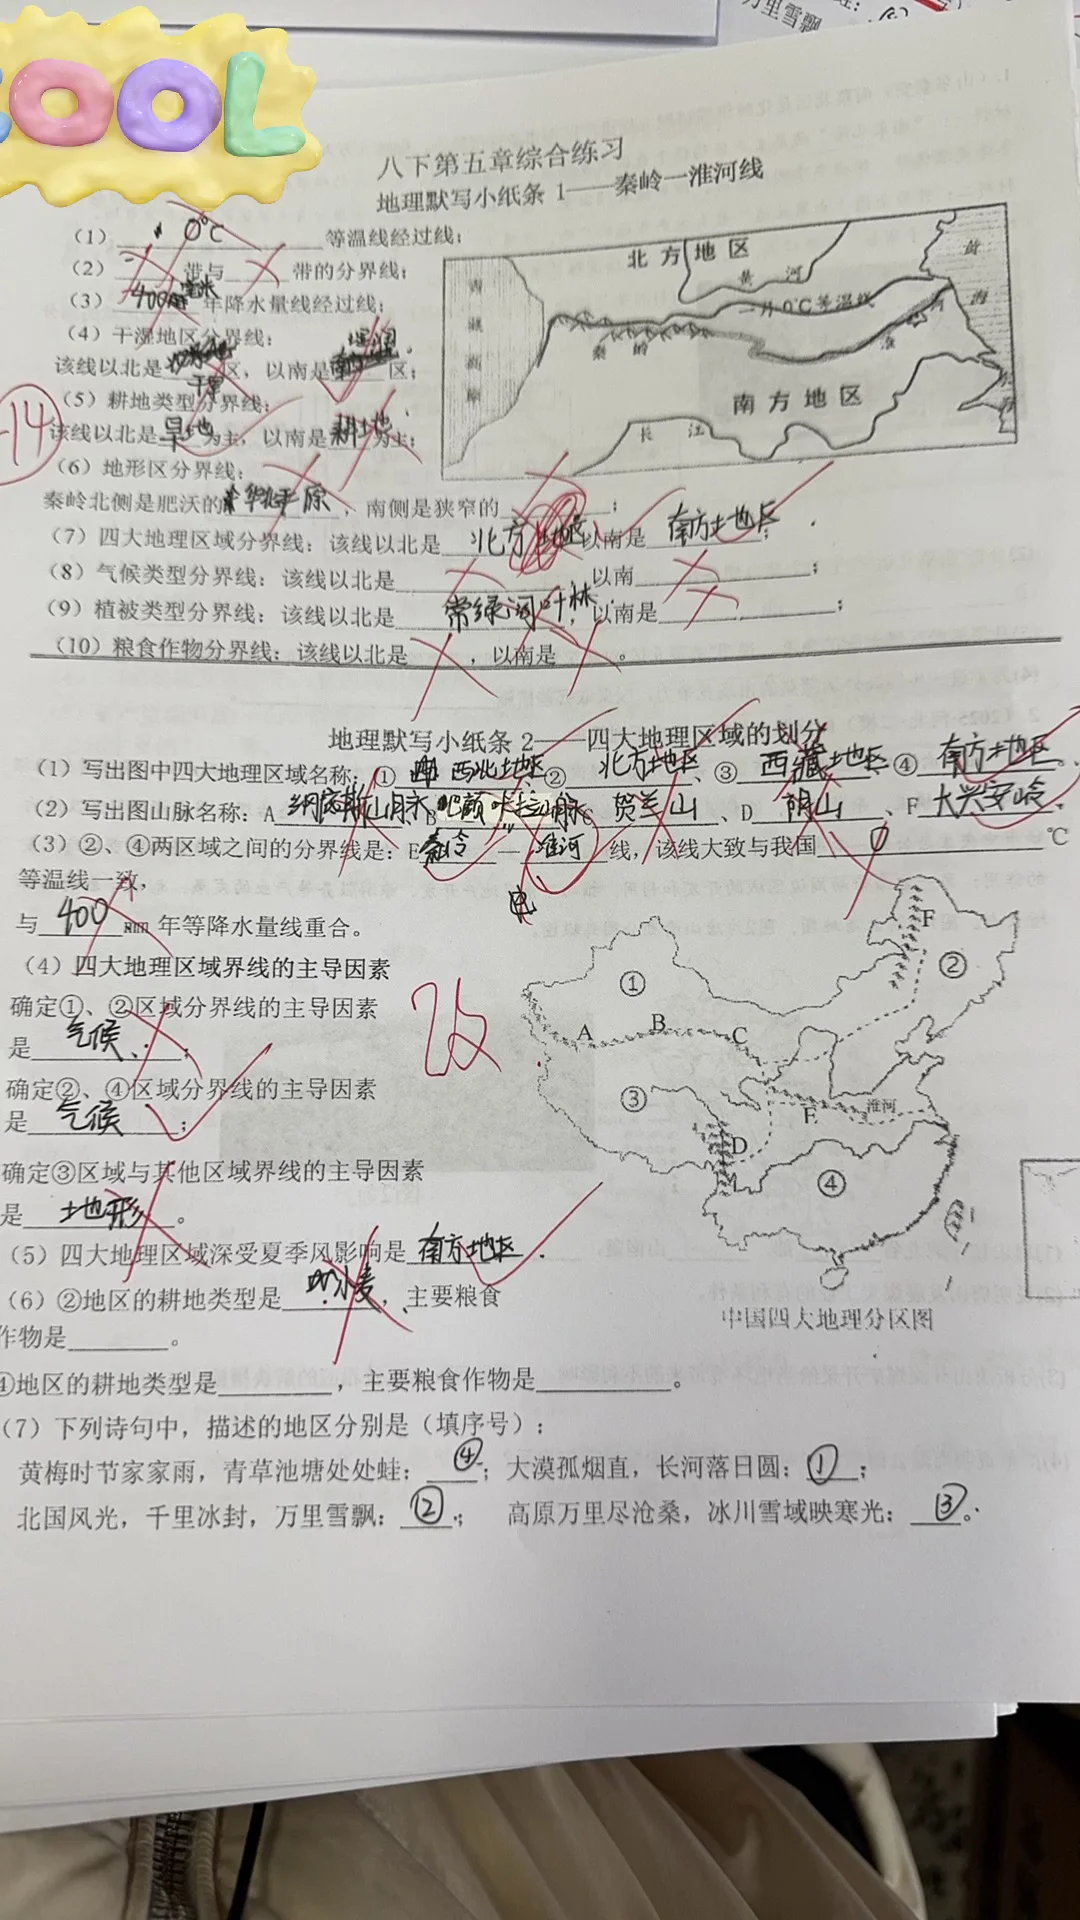 万里雪飘
COOL
八下第五章综合练习
地理默写小纸条 1——秦岭—淮河线
(1) 0℃ 等温线经过线；
(2) 带与 带的分界线；
(3) 400毫米 年降水量线经过线；
(4) 干湿地区分界线：
该线以北是 干旱 区，以南是 湿润 区；
(5) 耕地类型分界线：
该线以北是 旱地 为主，以南是 耕地 为主；
(6) 地形区分界线：
秦岭北侧是肥沃的 华北平原 ，南侧是狭窄的 ；
(7) 四大地理区域分界线：该线以北是 北方地区 以南是 南方地区 .
(8) 气候类型分界线：该线以北是 ，以南 ；
(9) 植被类型分界线：该线以北是 常绿阔叶林 ，以南是 ；
(10) 粮食作物分界线：该线以北是 ，以南是 。
北方地区
黄河
黄海
青藏高原
一月0℃等温线
秦岭
淮河
南方地区
长江
-14
地理默写小纸条 2——四大地理区域的划分
(1) 写出图中四大地理区域名称：① 西北地区 ② 北方地区 、③ 西藏地区 ④ 南方地区 。
(2) 写出图山脉名称：A 纲底斯山脉 、B 巴颜喀拉山脉 C 贺兰山 、D 阴山 、F 大兴安岭 .
(3) ②、④两区域之间的分界线是：E 秦冷 — 淮河 线，该线大致与我国 0 ℃
等温线一致，
与 400 mm 年等降水量线重合。
(4) 四大地理区域界线的主导因素
确定①、②区域分界线的主导因素
是 气候 ；
确定②、④区域分界线的主导因素
是 气候 ；
确定③区域与其他区域界线的主导因素
是 地形 。
(5) 四大地理区域深受夏季风影响是 南方地区 .
(6) ②地区的耕地类型是 小麦 ，主要粮食
作物是 。
④地区的耕地类型是 ，主要粮食作物是 。
改
①
②
③
④
A
B
C
D
E
F
淮河
中国四大地理分区图
(7) 下列诗句中，描述的地区分别是（填序号）：
黄梅时节家家雨，青草池塘处处蛙： ④ ；大漠孤烟直，长河落日圆： ① ；
北国风光，千里冰封，万里雪飘： ② ； 高原万里尽沧桑，冰川雪域映寒光： ③ 。